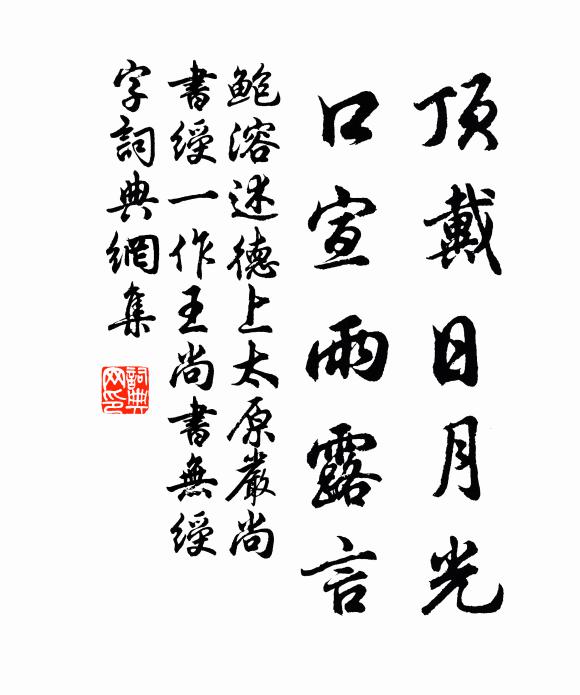 頂戴日月光
口宣雨露言
鮑溶述德上太原嚴尚
書綬一作王尚書無綬
字詞典網集
詞典
网印